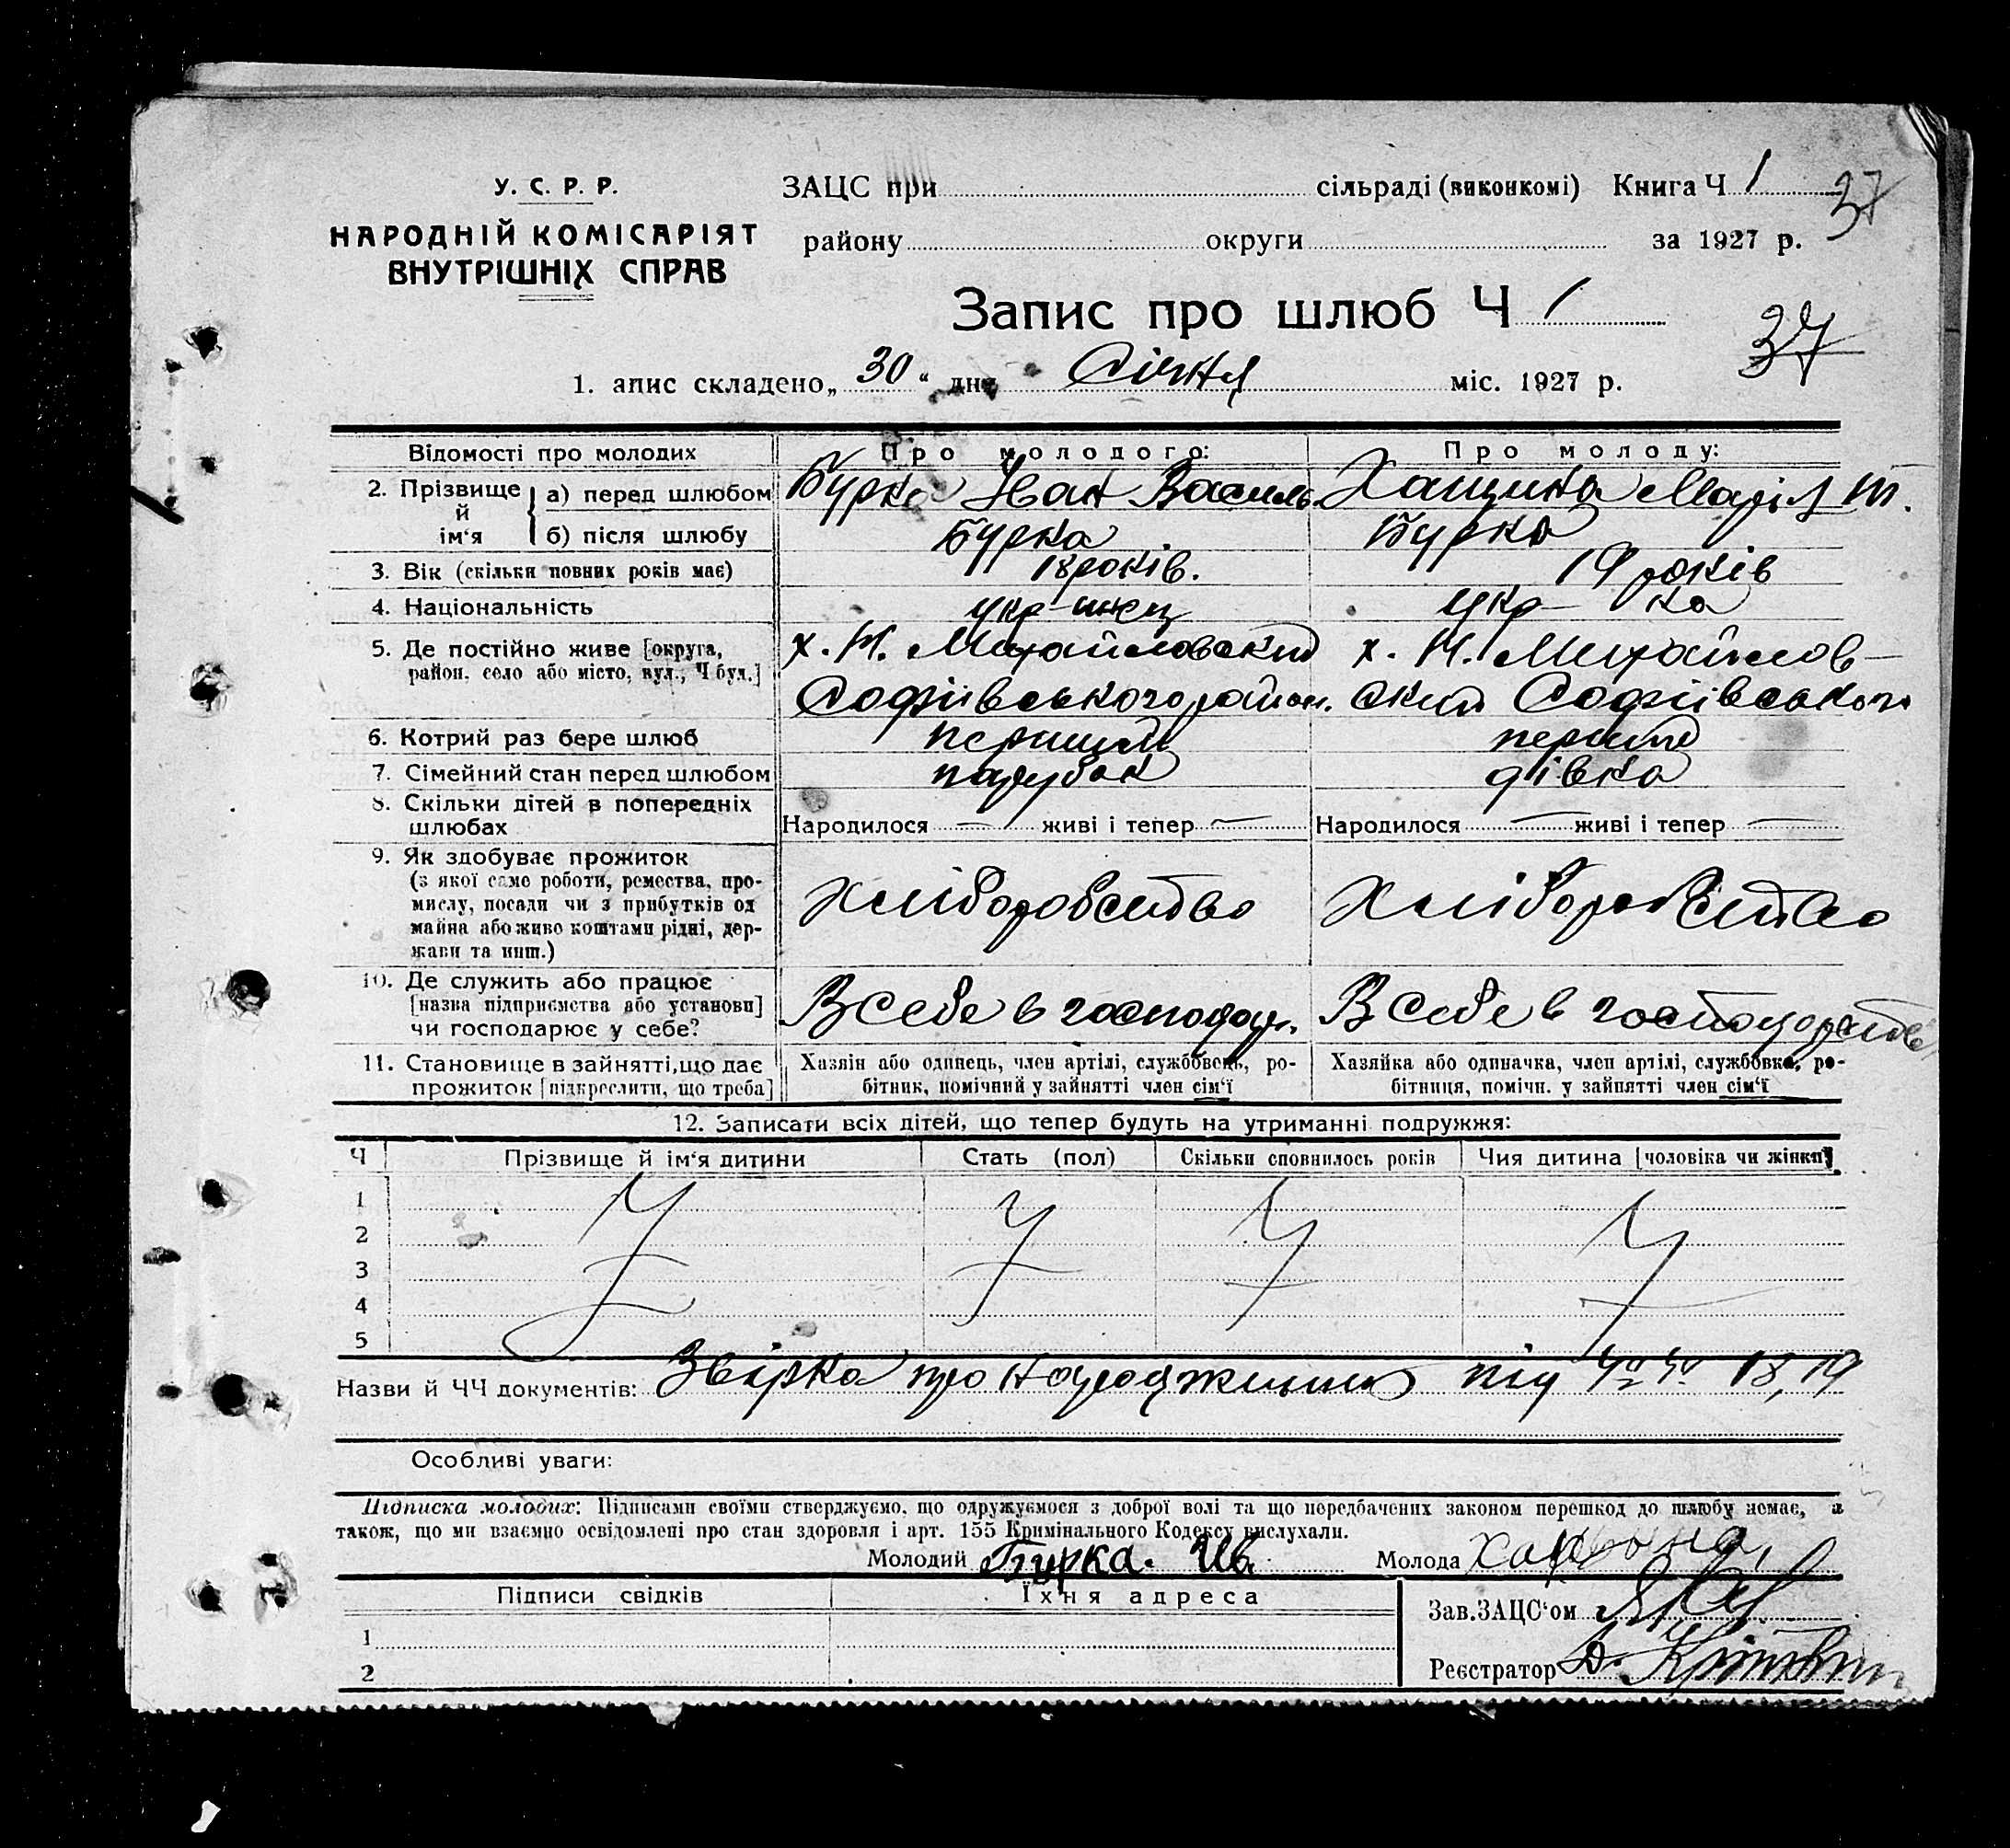 У. С. Р. Р.
НАРОДНІЙ КОМІСАРІЯТ
ВНУТРІШНІХ СПРАВ
ЗАЦС при сільраді (виконкомі) Книга Ч 1
37
району округи за 1927 р.
Запис про шлюб Ч 1
37
1. апис складено „ 30 “ дня Січня міс. 1927 р.
Відомості про молодих Про молодого: Про молоду:
2. Прізвище й ім‘я а) перед шлюбом Бурка Іван Василь Марія Т.
б) після шлюбу Бурка Бурка
3. Вік (скільки повних років має) 18 років. 19 років
4. Національність укр-инец укр-ка
5. Де постійно живе [округа, х. Н. Михайловский х. Н. Михайлов-
район, село або місто, вул., Ч буд.] Софіївського район. ский Софіївського
6. Котрий раз бере шлюб перший перший
7. Сімейний стан перед шлюбом парубок дівка
8. Скільки дітей в попередніх
шлюбах Народилося — живі і тепер — Народилося — живі і тепер —
9. Як здобуває прожиток
(з якої саме роботи, ремества, про-
мислу, посади чи з прибутків од Хліборобство Хліборобство
майна або живо коштами рідні, дер-
жави та инш.)
10. Де служить або працює
[назва підприємства або установи] В себе в господар. В себе в господарстві
чи господарює у себе?
11. Становище в зайнятті, що дає Хазяїн або одинець, член артілі, службовець, ро- Хазяйка або одиначка, член артілі, службовка, ро-
прожиток [підкреслити, що треба] бітник, помічний у зайнятті член сім‘ї бітниця, помічн. у зайнятті член сім‘ї
12. Записати всіх дітей, що тепер будуть на утриманні подружжя:
Ч Прізвище й ім‘я дитини Стать (пол) Скільки сповнилось років Чия дитина [чоловіка чи жінки]
1
2
3
4
5
Назви й ЧЧ документів: Звірка про народження під 18, 19
Особливі уваги:
Підписка молодих: Підписами своїми стверджуємо, що одружуємося з доброї волі та що передбачених законом перешкод до шлюбу немає, а
також, що ми взаємно освідомлені про стан здоровля і арт. 155 Кримінального Кодексу вислухали.
Молодий Бурка. Ив. Молода
Підписи свідків Їхня адреса
Зав. ЗАЦС‘ом
1
Реєстратор Д.
2